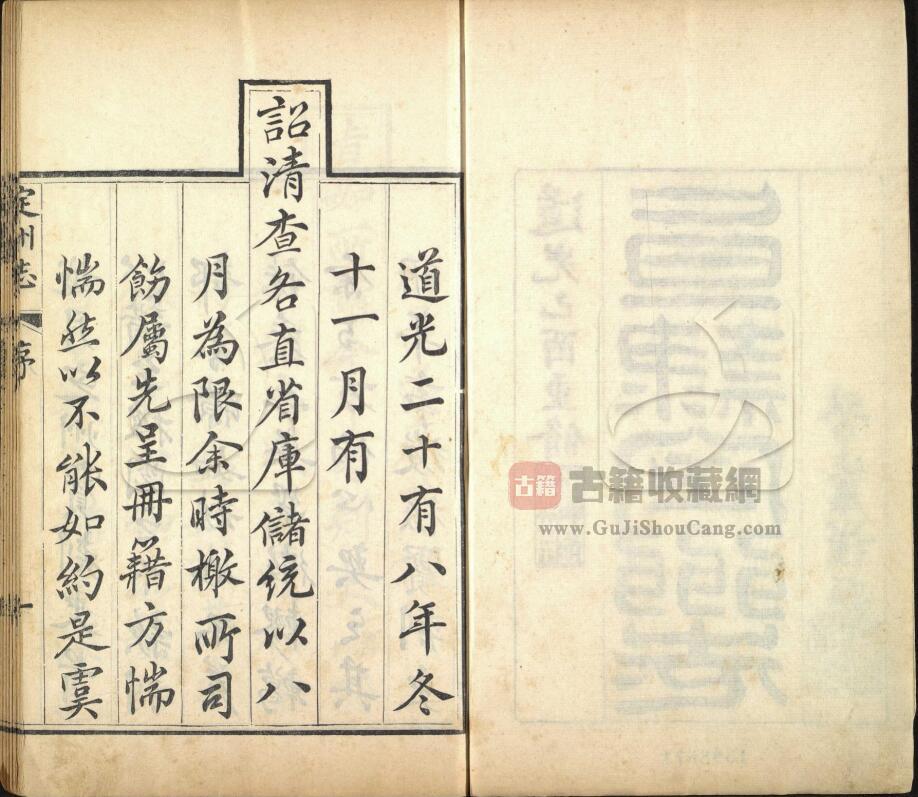 道光二十有八年冬
十一月有
詔清查各直省庫儲統以八
月為限余時檄所司
飭屬先呈冊籍方惴
惴然以不能如約是虞
定州志 序 一
古籍 古籍收藏網
www.GuJiShouCang.com